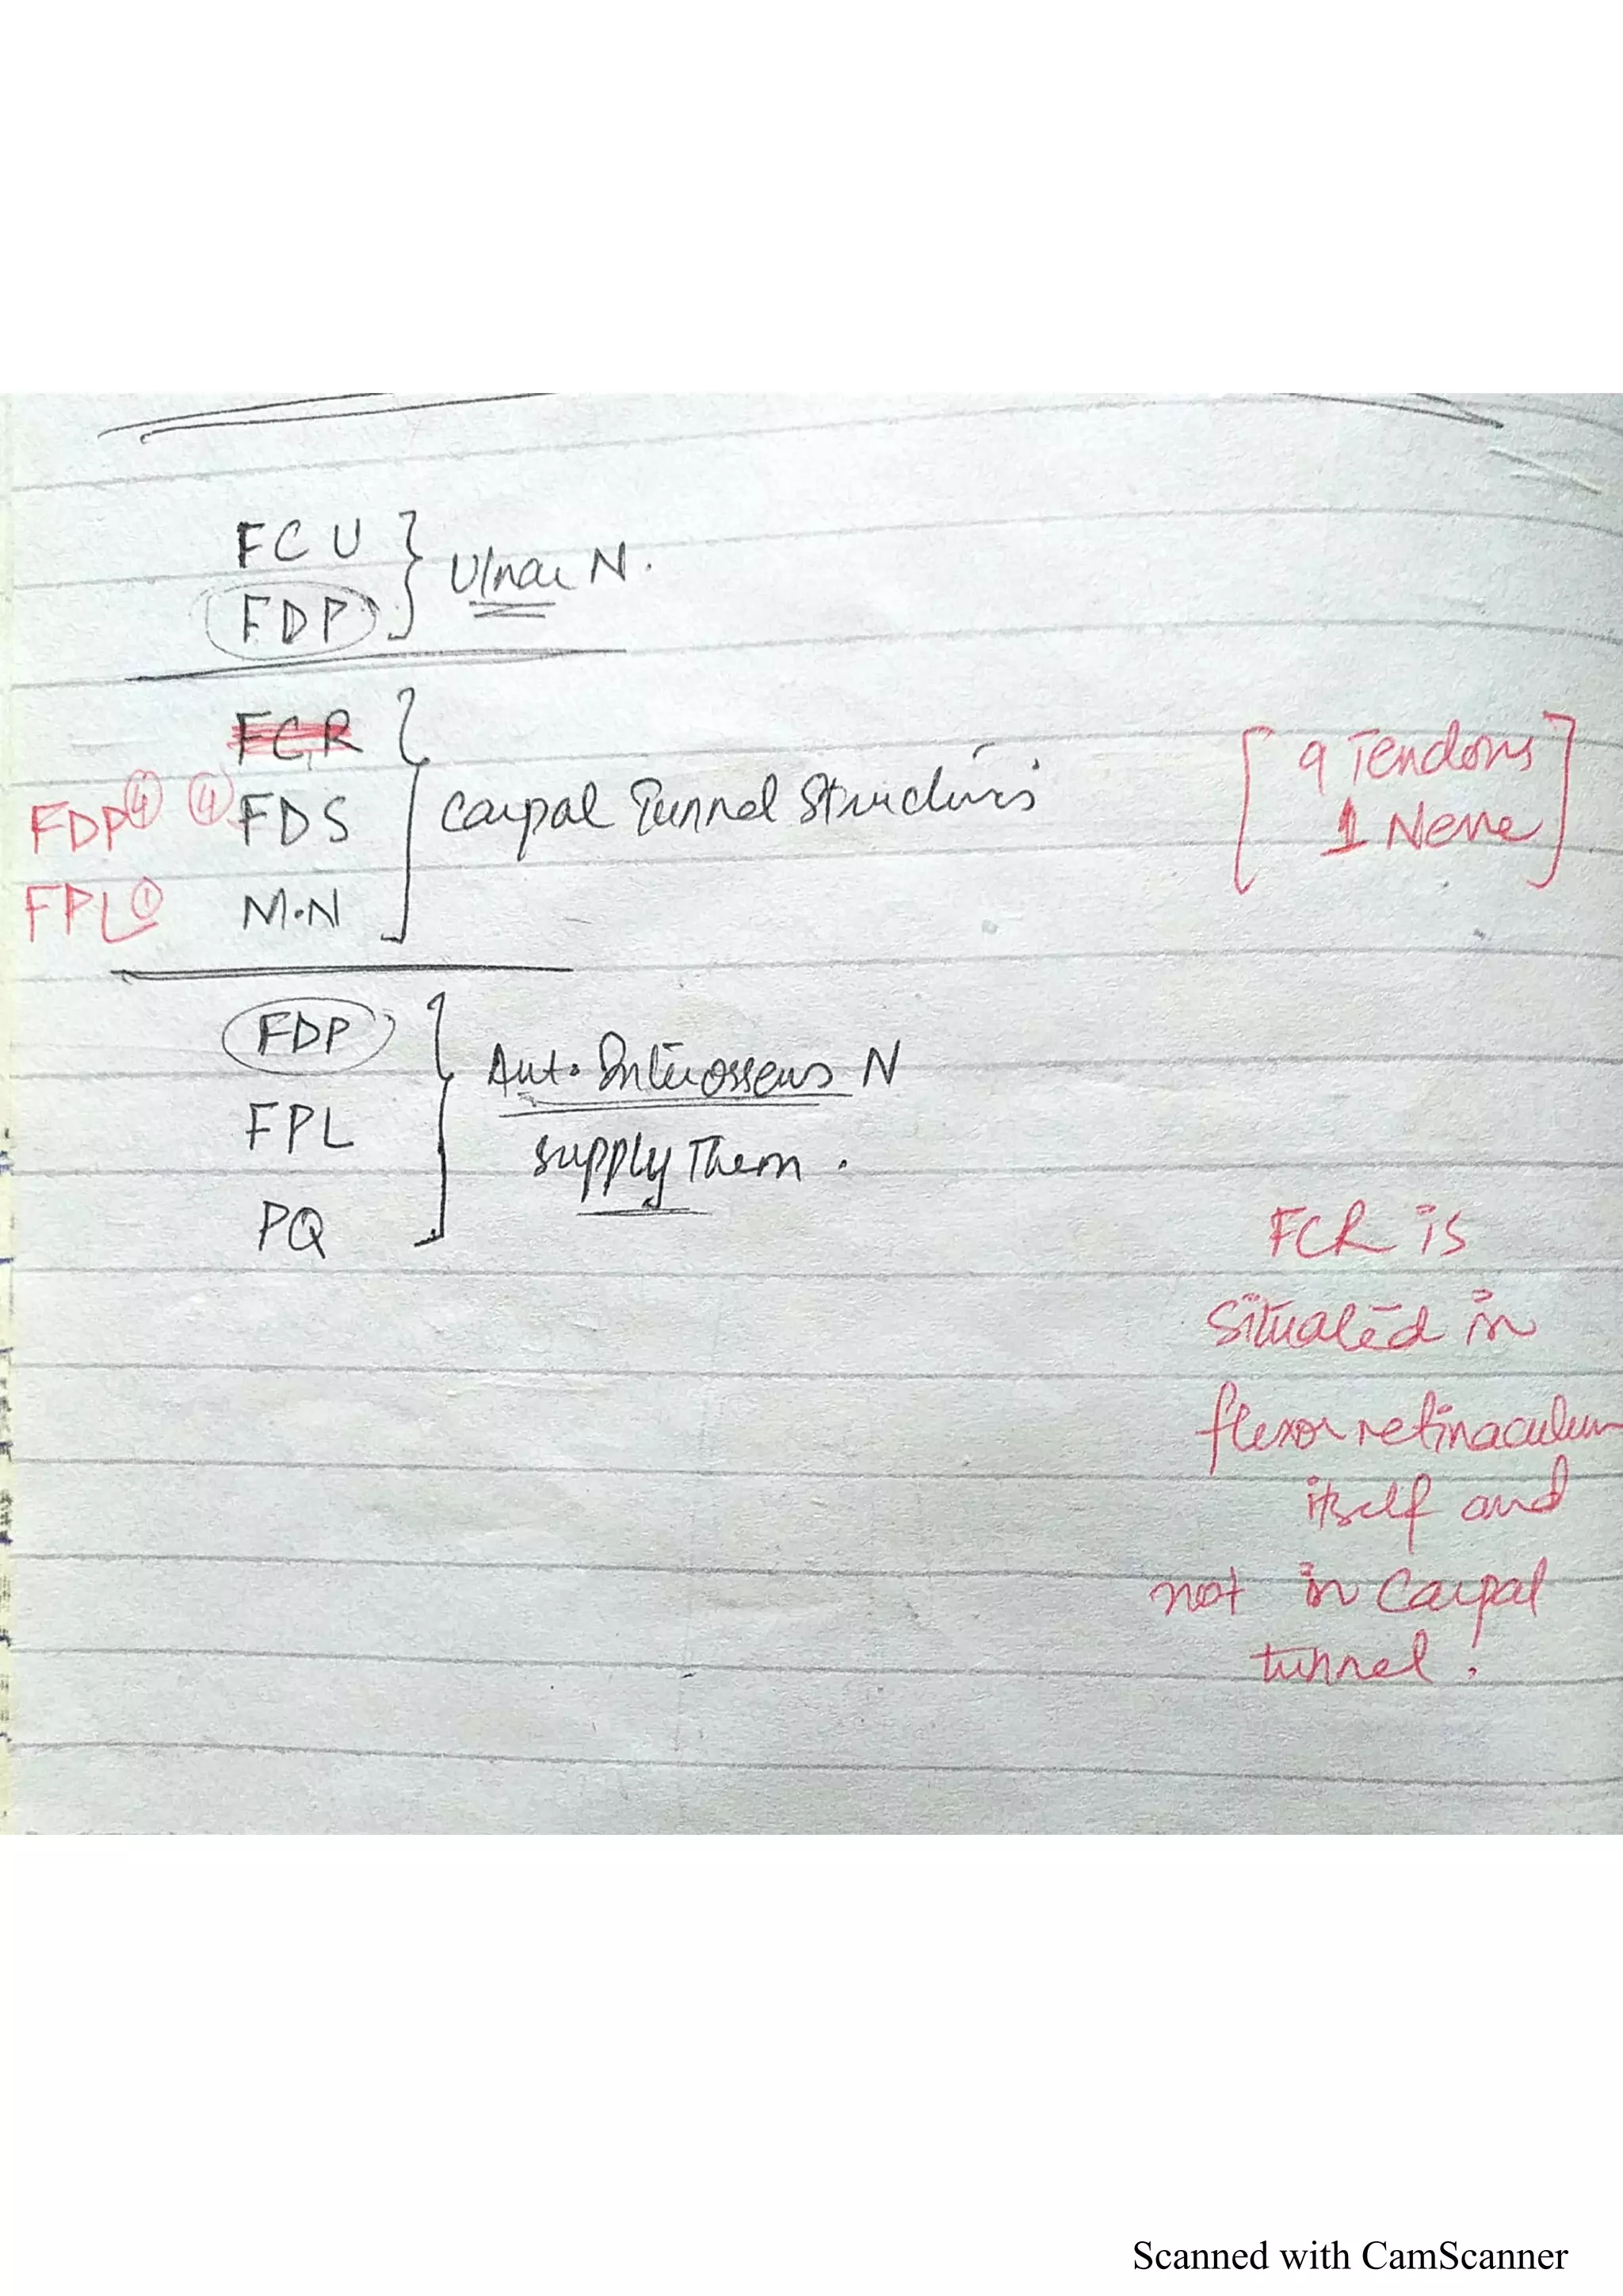 FCU
FDP
Ulnar N.
FCR
FDP ④ ④ FDS
FPL ① M.N
Carpal Tunnel Structures
[ 9 Tendons
1 Nerve ]
FDP
FPL
PQ
Ant. Interosseus N
supply Them.
FCR is
situated in
flexor retinaculum
itself and
not in Carpal
tunnel.
Scanned with CamScanner